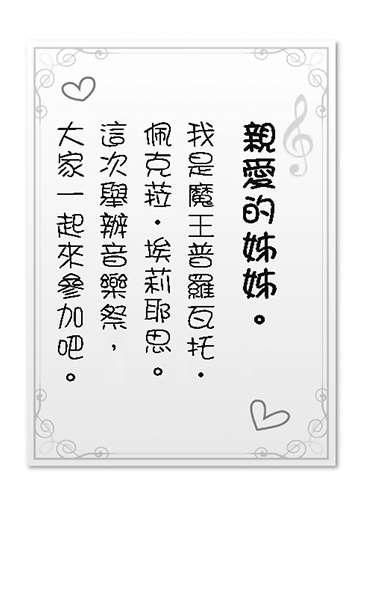 親愛的姊姊。
我是魔王普羅瓦托・
佩克菈・埃莉耶思。
這次舉辦音樂祭，
大家一起來參加吧。